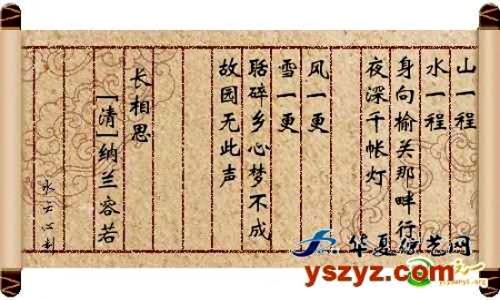 山一程
水一程
身向榆关那畔行
夜深千帐灯
风一更
雪一更
聒碎乡心梦不成
故园无此声
长相思
[清]纳兰容若
华夏 艺网
yszyz.com